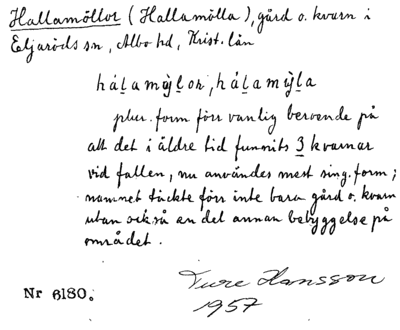 Hallamöllor (Hallamölla), gård o. kvarn i
Eljaröds sn, Albo hd, Krist. län
hálamỳlor, hálamỳla
plur. form förr vanlig beroende på
att det i äldre tid funnits 3 kvarnar
vid fallen, nu användes mest sing. form;
namnet täckte förr inte bara gård o. kvarn
utan också en del annan bebyggelse på
området.
Ture Hansson
Nr 6180.
1957